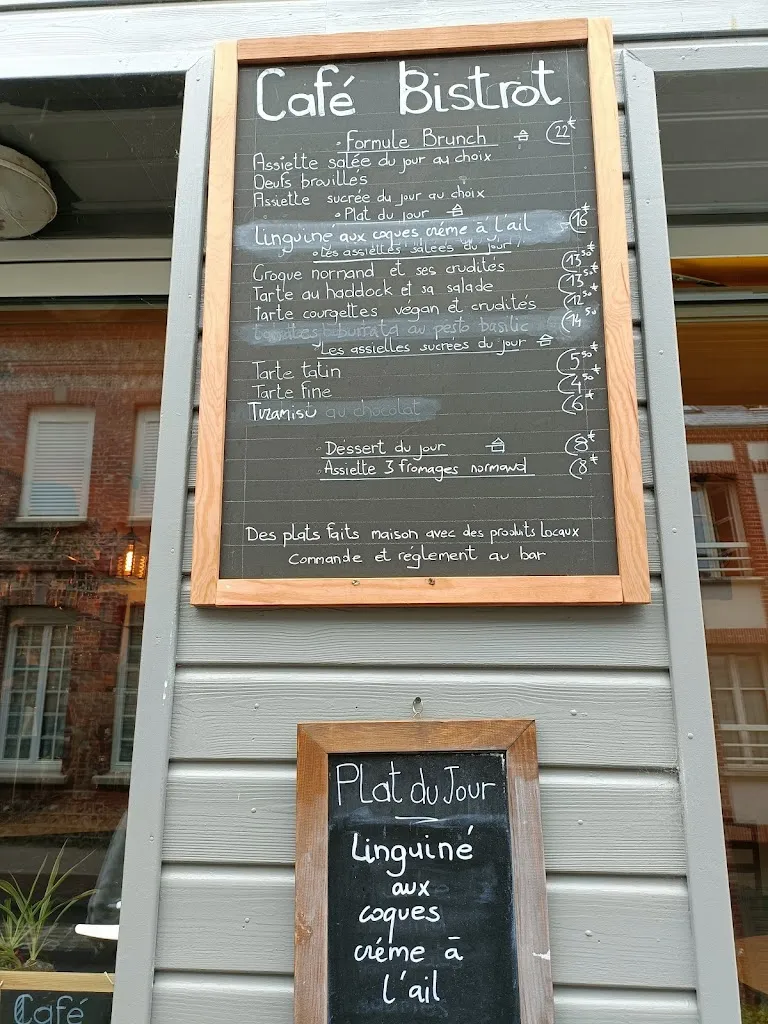 Café Bistrot
• Formule Brunch 22€
Assiette salée du jour au choix
Oeufs brouillés
Assiette sucrée du jour au choix
• Plat du jour
Linguiné aux coques créme à l'ail 16€
• Les assiettes salées du jour
Croque normand et ses crudités 13,50€
Tarte au haddock et sa salade 13,50€
Tarte courgettes végan et crudités 12,50€
tomates burrata au pesto basilic 14,50
Les assielles sucrées du jour
Tarte tatin 5,50€
Tarte fine 4,50€
Tiramisu au chocolat 6€
• Dessert du jour 8€
• Assiette 3 fromages normand 8€
Des plats faits maison avec des produits locaux
Commande et réglement au bar
Plat du Jour
Linguiné
aux
coques
créme à
l'ail
Café